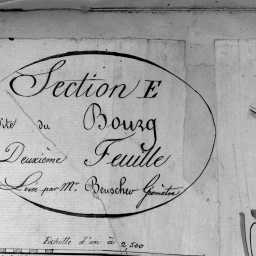 Section E
dite du Bourg
Deuxième Feuille
Levée par Mr. Beuscher Géomètre
Echelle d'un à 2,500